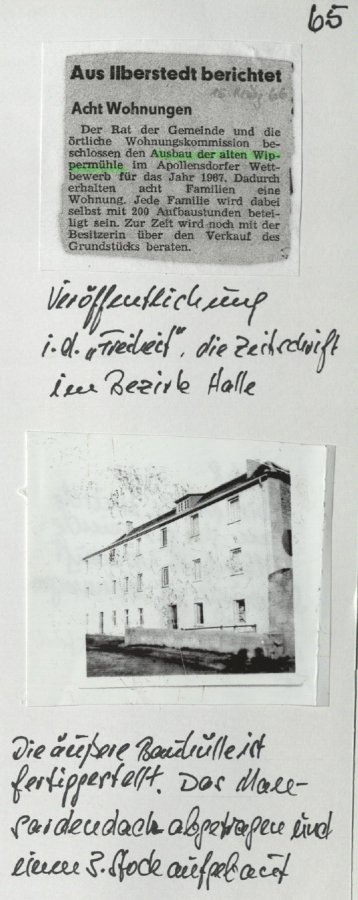 65
Aus Ilberstedt berichtet
Acht Wohnungen
Der Rat der Gemeinde und die
örtliche Wohnungskommission be-
schlossen den Ausbau der alten Wip-
permühle im Apollensdorfer Wett-
bewerb für das Jahr 1967. Dadurch
erhalten acht Familien eine
Wohnung. Jede Familie wird dabei
selbst mit 200 Aufbaustunden betei-
ligt sein. Zur Zeit wird noch mit der
Besitzerin über den Verkauf des
Grundstücks beraten.
Veröffentlichung
i.d. „Freiheit", die Zeitschrift
im Bezirk Halle
Die äußere Bauhülle ist
fertiggestellt. Das Man-
sardendach abgetragen und
einen 3. Stock aufgebaut